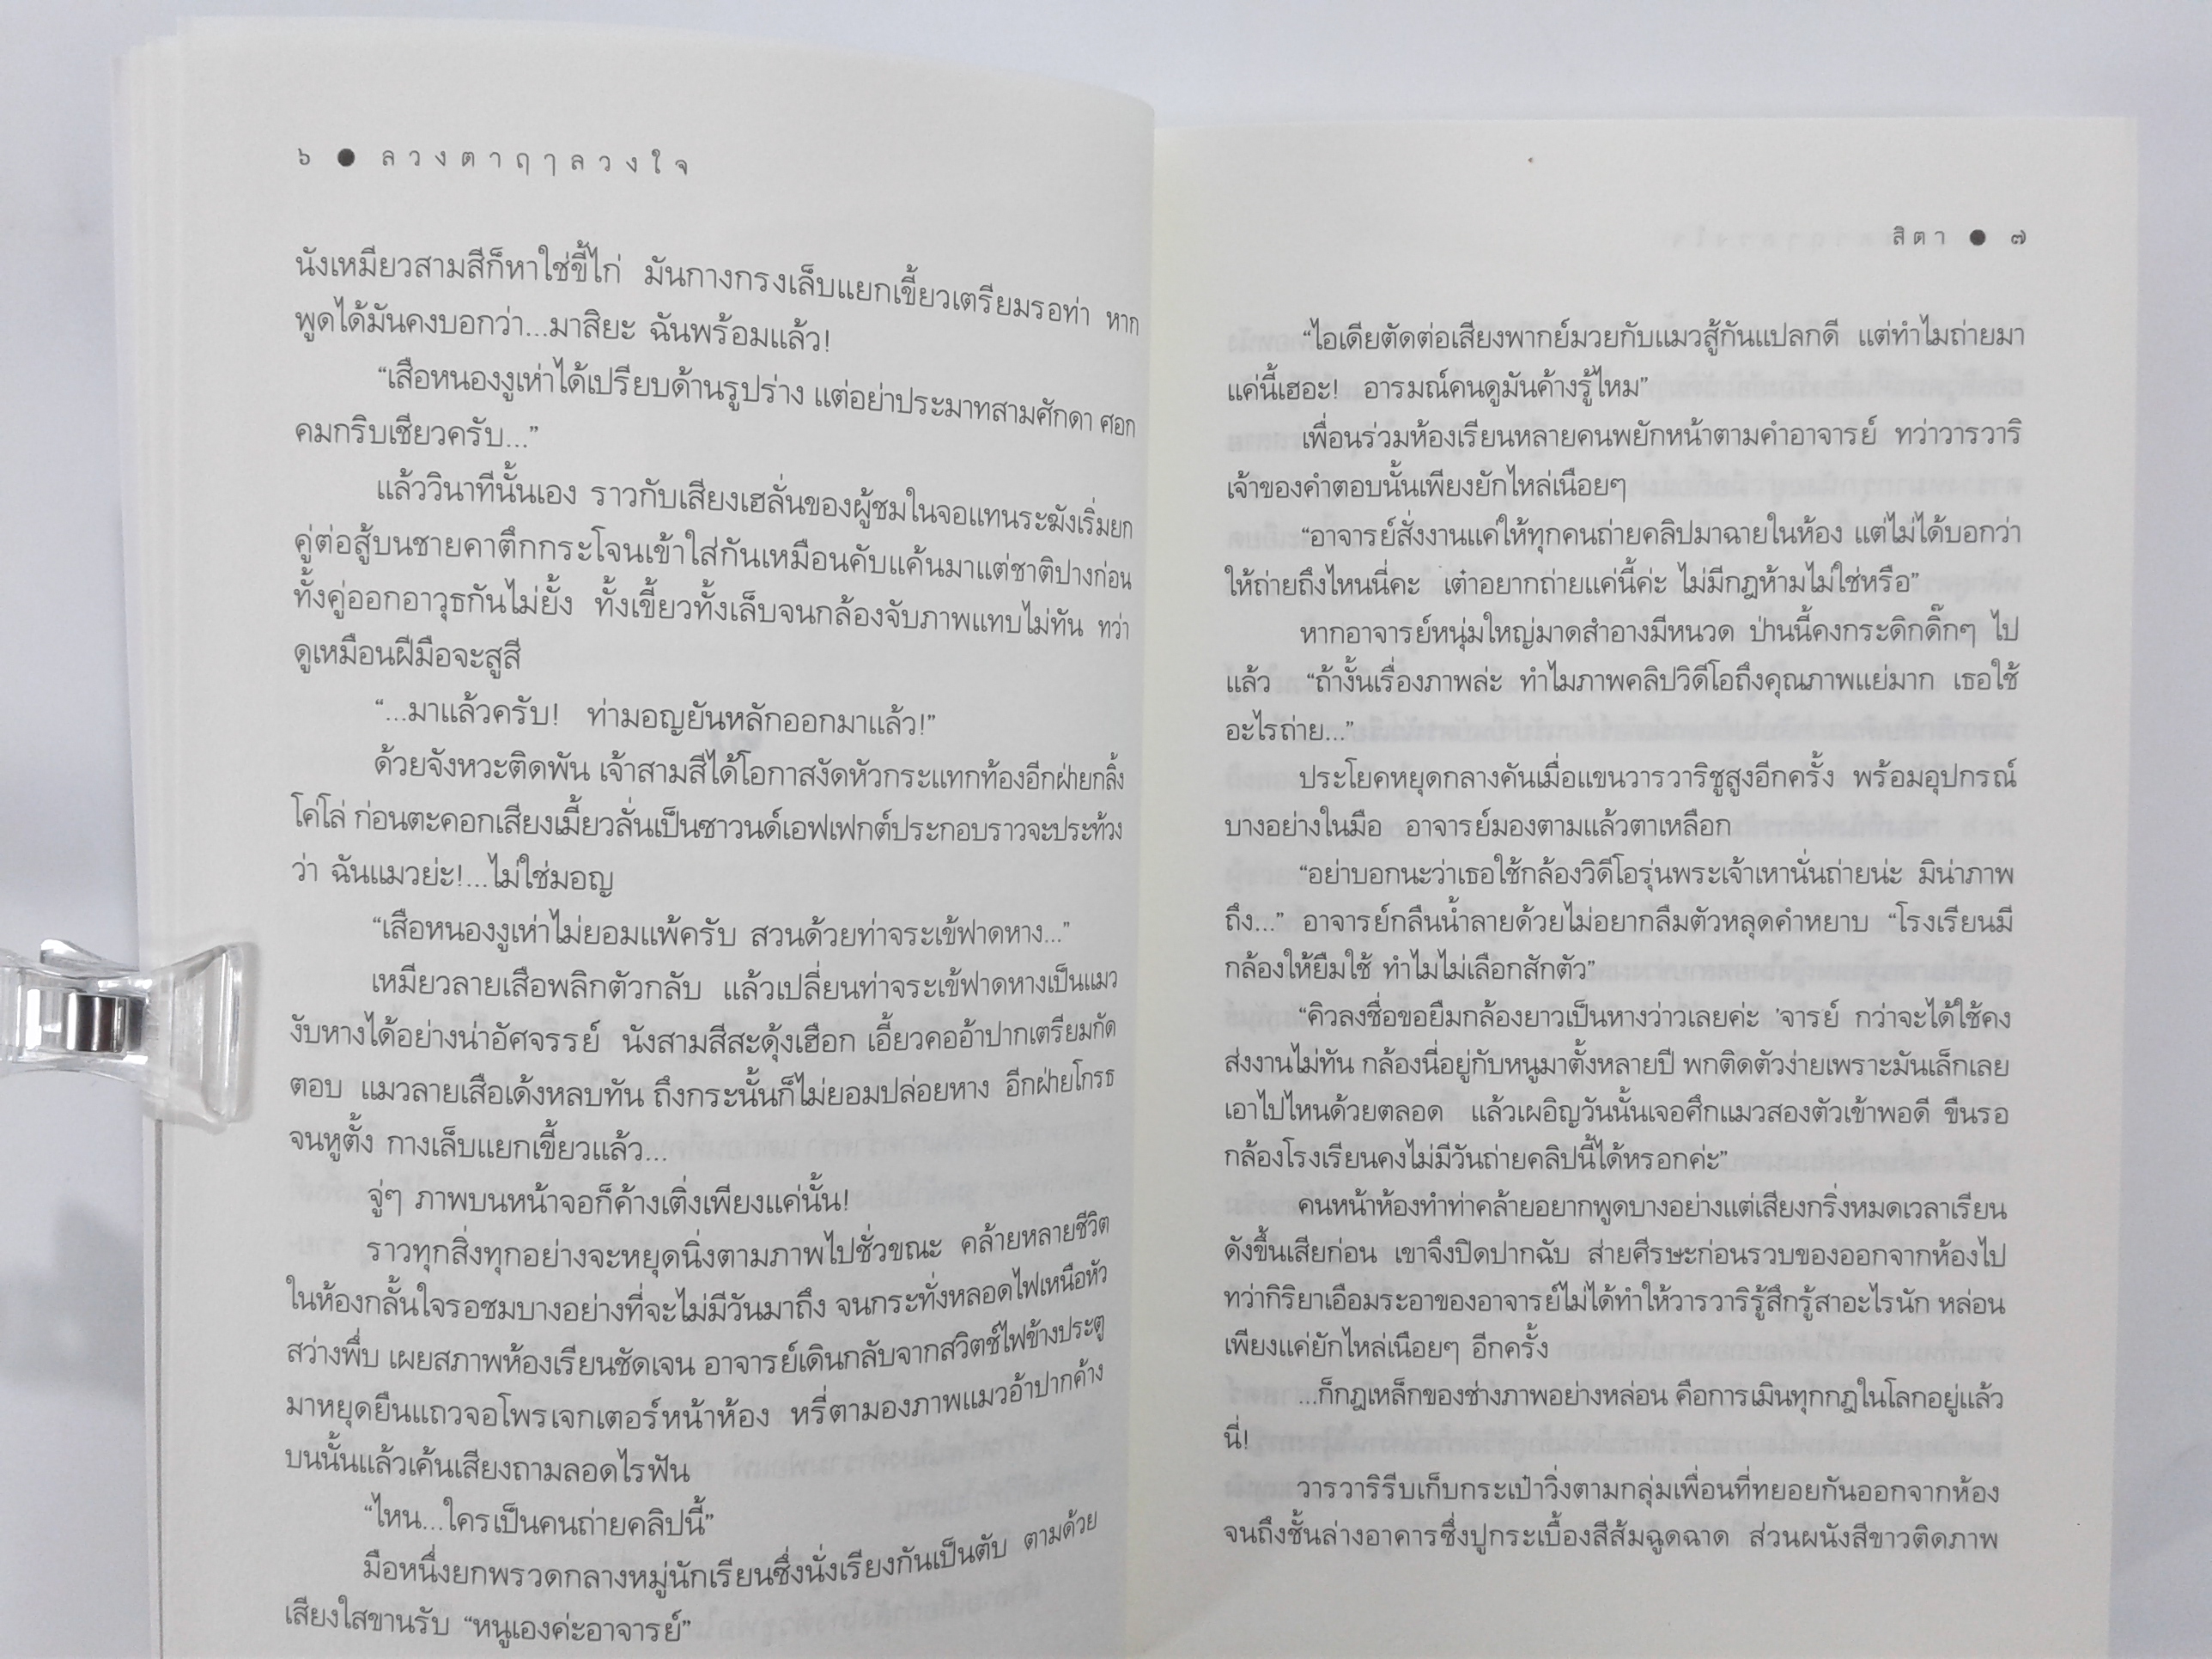 ๖ ● ลวงตาฤๅลวงใจ
นังเหมียวสามสีก็หาใช่ขี้ไก่ มันกางกรงเล็บแยกเขี้ยวเตรียมรอท่า หาก
พูดได้มันคงบอกว่า...มาสิยะ ฉันพร้อมแล้ว!
“เสือหนองงูเห่าได้เปรียบด้านรูปร่าง แต่อย่าประมาทสามศักดา ศอก
คมกริบเชียวครับ...”
แล้ววินาทีนั้นเอง ราวกับเสียงเฮลั่นของผู้ชมในจอแทนระฆังเริ่มยก
คู่ต่อสู้บนชายคาตึกกระโจนเข้าใส่กันเหมือนคับแค้นมาแต่ชาติปางก่อน
ทั้งคู่ออกอาวุธกันไม่ยั้ง ทั้งเขี้ยวทั้งเล็บจนกล้องจับภาพแทบไม่ทัน ทว่า
ดูเหมือนฝีมือจะสูสี
“...มาแล้วครับ! ท่ามอญยันหลักออกมาแล้ว!”
ด้วยจังหวะติดพัน เจ้าสามสีได้โอกาสงัดหัวกระแทกท้องอีกฝ่ายกลิ้ง
โค่โล่ ก่อนตะคอกเสียงเมี้ยวลั่นเป็นซาวนด์เอฟเฟกต์ประกอบราวจะประท้วง
ว่า ฉันแมวย่ะ!...ไม่ใช่มอญ
“เสือหนองงูเห่าไม่ยอมแพ้ครับ สวนด้วยท่าจระเข้ฟาดหาง...”
เหมียวลายเสือพลิกตัวกลับ แล้วเปลี่ยนท่าจระเข้ฟาดหางเป็นแมว
งับหางได้อย่างน่าอัศจรรย์ นังสามสีสะดุ้งเฮือก เอี้ยวคออ้าปากเตรียมกัด
ตอบ แมวลายเสือเด้งหลบทัน ถึงกระนั้นก็ไม่ยอมปล่อยหาง อีกฝ่ายโกรธ
จนหูตั้ง กางเล็บแยกเขี้ยวแล้ว...
จู่ๆ ภาพบนหน้าจอก็ค้างเติ่งเพียงแค่นั้น!
ราวทุกสิ่งทุกอย่างจะหยุดนิ่งตามภาพไปชั่วขณะ คล้ายหลายชีวิต
ในห้องกลั้นใจรอชมบางอย่างที่จะไม่มีวันมาถึง จนกระทั่งหลอดไฟเหนือหัว
สว่างพึ่บ เผยสภาพห้องเรียนชัดเจน อาจารย์เดินกลับจากสวิตช์ไฟข้างประตู
มาหยุดยืนแถวจอโพรเจกเตอร์หน้าห้อง หรี่ตามองภาพแมวอ้าปากค้าง
บนนั้นแล้วเค้นเสียงถามลอดไรฟัน
“ไหน...ใครเป็นคนถ่ายคลิปนี้”
มือหนึ่งยกพรวดกลางหมู่นักเรียนซึ่งนั่งเรียงกันเป็นตับ ตามด้วย
เสียงใสขานรับ “หนูเองค่ะอาจารย์”
สิตา ● ๗
“ไอเดียตัดต่อเสียงพากย์มวยกับแมวสู้กันแปลกดี แต่ทำไมถ่ายมา
แค่นี้เฮอะ! อารมณ์คนดูมันค้างรู้ไหม”
เพื่อนร่วมห้องเรียนหลายคนพยักหน้าตามคำอาจารย์ ทว่าวารวาริ
เจ้าของคำตอบนั้นเพียงยักไหล่เนือยๆ
“อาจารย์สั่งงานแค่ให้ทุกคนถ่ายคลิปมาฉายในห้อง แต่ไม่ได้บอกว่า
ให้ถ่ายถึงไหนนี่คะ เต๋าอยากถ่ายแค่นี้ค่ะ ไม่มีกฎห้ามไม่ใช่หรือ”
หากอาจารย์หนุ่มใหญ่มาดสำอางมีหนวด ป่านนี้คงกระดิกดิ๊กๆ ไป
แล้ว “ถ้างั้นเรื่องภาพล่ะ ทำไมภาพคลิปวิดีโอถึงคุณภาพแย่มาก เธอใช้
อะไรถ่าย...”
ประโยคหยุดกลางคันเมื่อแขนวารวาริชูสูงอีกครั้ง พร้อมอุปกรณ์
บางอย่างในมือ อาจารย์มองตามแล้วตาเหลือก
“อย่าบอกนะว่าเธอใช้กล้องวิดีโอรุ่นพระเจ้าเหานั่นถ่ายน่ะ มิน่าภาพ
ถึง...” อาจารย์กลืนน้ำลายด้วยไม่อยากลืมตัวหลุดคำหยาบ “โรงเรียนมี
กล้องให้ยืมใช้ ทำไมไม่เลือกสักตัว”
“คิวลงชื่อขอยืมกล้องยาวเป็นหางว่าวเลยค่ะ 'จารย์ กว่าจะได้ใช้คง
ส่งงานไม่ทัน กล้องนี่อยู่กับหนูมาตั้งหลายปี พกติดตัวง่ายเพราะมันเล็กเลย
เอาไปไหนด้วยตลอด แล้วเผอิญวันนั้นเจอศึกแมวสองตัวเข้าพอดี ขืนรอ
กล้องโรงเรียนคงไม่มีวันถ่ายคลิปนี้ได้หรอกค่ะ”
คนหน้าห้องทำท่าคล้ายอยากพูดบางอย่างแต่เสียงกริ่งหมดเวลาเรียน
ดังขึ้นเสียก่อน เขาจึงปิดปากฉับ ส่ายศีรษะก่อนรวบของออกจากห้องไป
ทว่ากิริยาเอือมระอาของอาจารย์ไม่ได้ทำให้วารวาริรู้สึกรู้สาอะไรนัก หล่อน
เพียงแค่ยักไหล่เนือยๆ อีกครั้ง
...ก็กฎเหล็กของช่างภาพอย่างหล่อน คือการเมินทุกกฎในโลกอยู่แล้ว
นี่!
วารวาริรีบเก็บกระเป๋าวิ่งตามกลุ่มเพื่อนที่ทยอยกันออกจากห้อง
จนถึงชั้นล่างอาคารซึ่งปูกระเบื้องสีส้มฉูดฉาด ส่วนผนังสีขาวติดภาพ